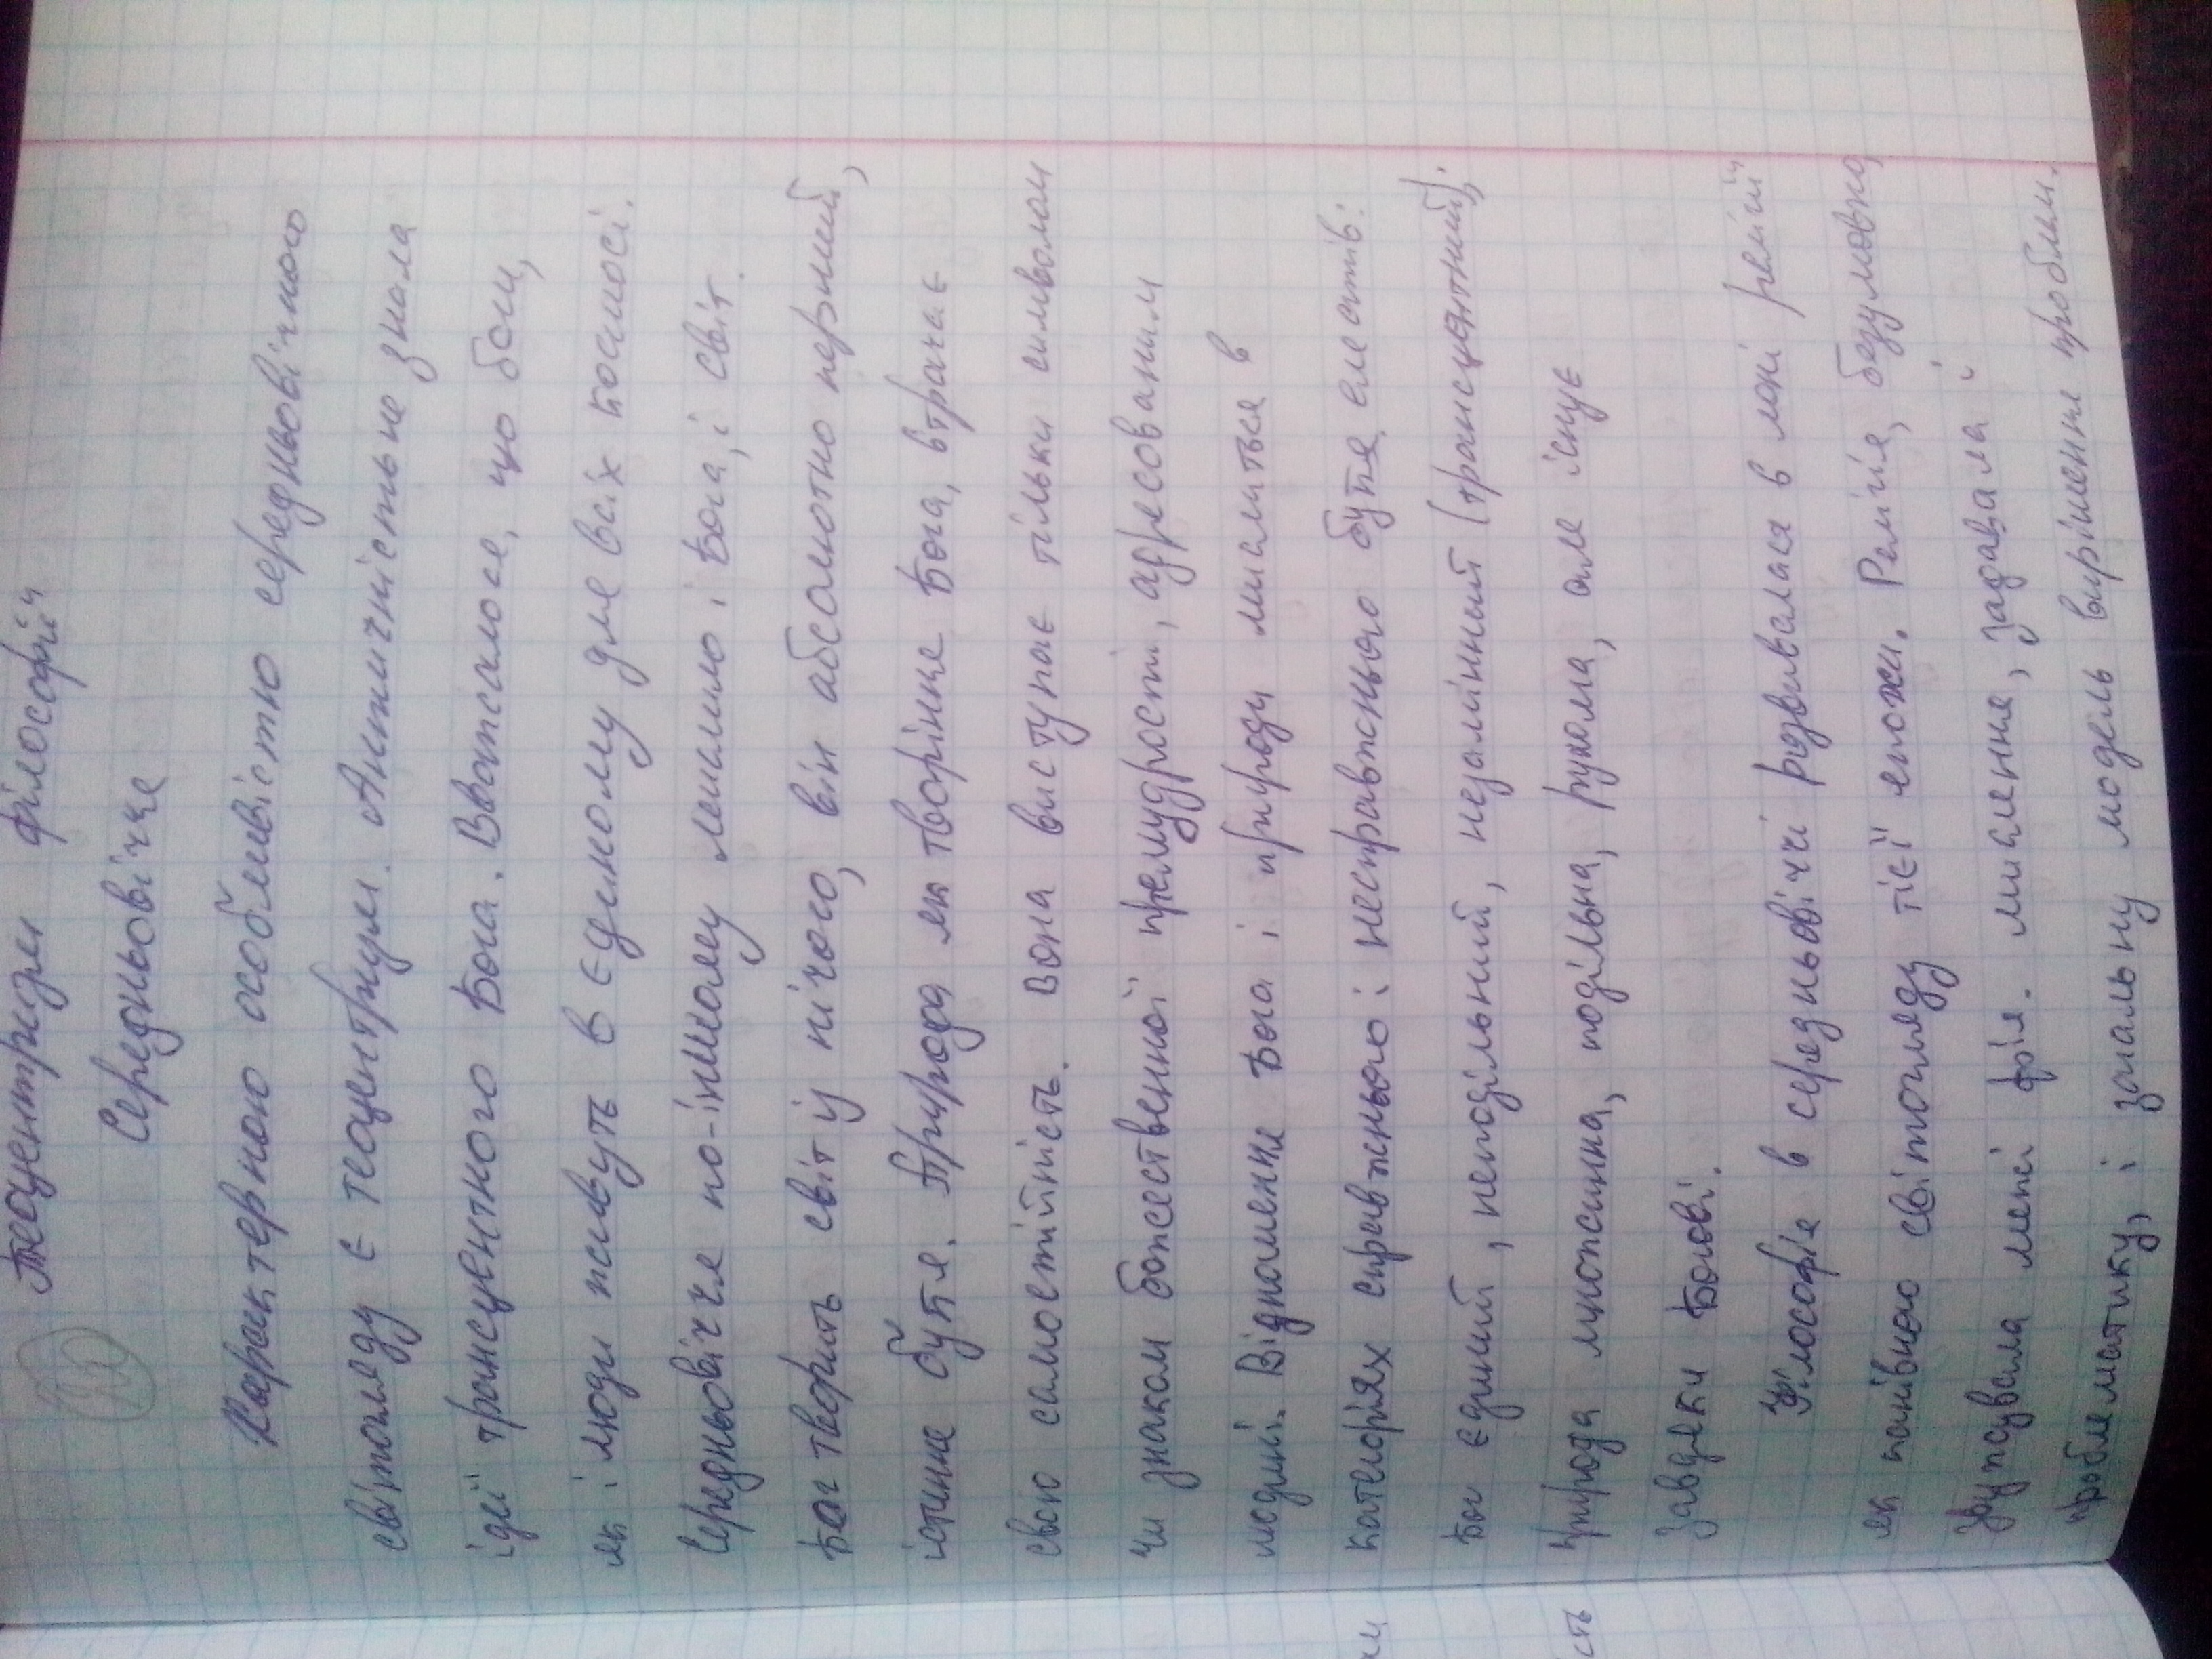 Теоцентризм філософії
Середньовіччя
Характерною особливістю середньовічного
світогляду є теоцентризм. Античність не знала
ідеї трансцентного Бога. Вважалося, що боги,
як і люди живуть в єдиному для всіх космосі.
Середньовіччя по-іншому мислило і Бога, і світ.
Бог творить світ із нічого, він абсолютно перший,
істинне буття. Природа як творіння Бога, втрачає
свою самостійність. Вона виступає тільки символом
чи знаком божественної премудрості, адресованим
людині. Відношення Бога і природи мислиться в
категоріях справжнього і несправжнього буття елеатів:
Бог єдиний, неподільний, незмінний (трансцентний);
природа множинна, подільна, рухома, але існує
завдяки Богові.
Філософія в середньовіччі розвивалася в лоні релігії
як панівного світогляду тієї епохи. Релігія, безумовно,
звужувала межі філ. мислення, задавала її
проблематику, і загальну модель вирішення проблем.
ми
сть